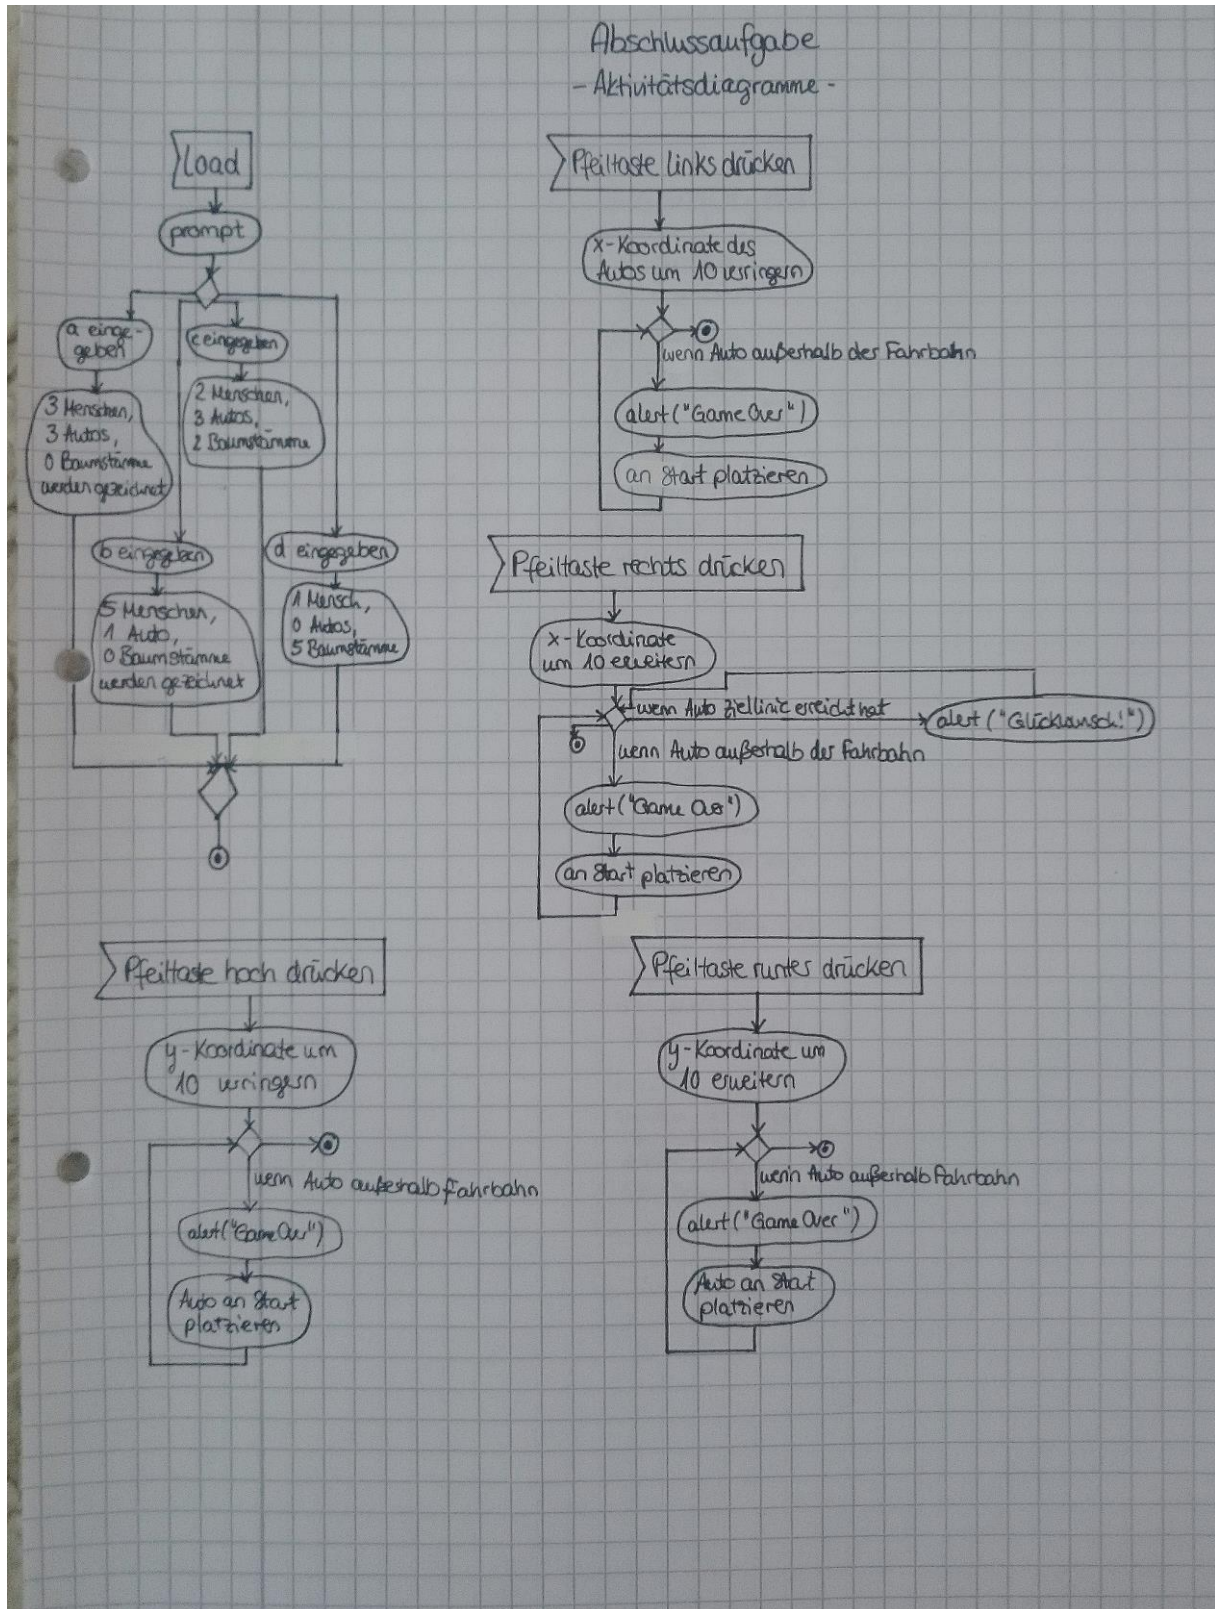 Abschlussaufgabe
- Aktivitätsdiagramme -
Load
prompt
a einge-
geben
3 Menschen,
3 Autos,
0 Baumstämme
werden gezeichnet
c eingegeben
2 Menschen,
3 Autos,
2 Baumstämme
b eingegeben
5 Menschen,
1 Auto,
0 Baumstämme
werden gezeichnet
d eingegeben
1 Mensch,
0 Autos,
5 Baumstämme
Pfeiltaste links drücken
x-Koordinate des
Autos um 10 verringern
wenn Auto außerhalb der Fahrbahn
alert("Game Over")
an Start platzieren
Pfeiltaste rechts drücken
x-Koordinate
um 10 erweitern
wenn Auto Ziellinie erreicht hat
alert ("Glückwunsch!")
wenn Auto außerhalb der Fahrbahn
alert("Game Over")
an Start platzieren
Pfeiltaste hoch drücken
y-Koordinate um
10 verringern
wenn Auto außerhalb Fahrbahn
alert("Game Over")
Auto an Start
platzieren
Pfeiltaste runter drücken
y-Koordinate um
10 erweitern
wenn Auto außerhalb Fahrbahn
alert("Game Over")
Auto an Start
platzieren